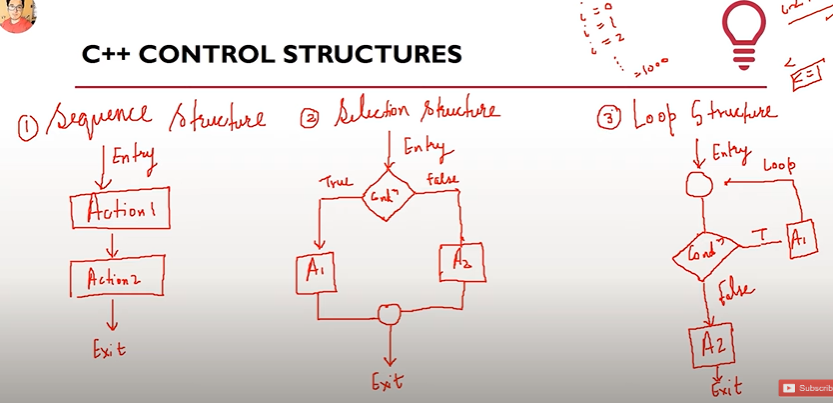 C++ CONTROL STRUCTURES
i = 0
i = 1
i = 2
>1000
① Sequence Structure
Entry
Action1
Action2
Exit
② Selection Structure
Entry
True
False
Condn
A1
A2
Exit
③ Loop Structure
Entry
Loop
Condn
T
A1
False
A2
Exit
Subscrib